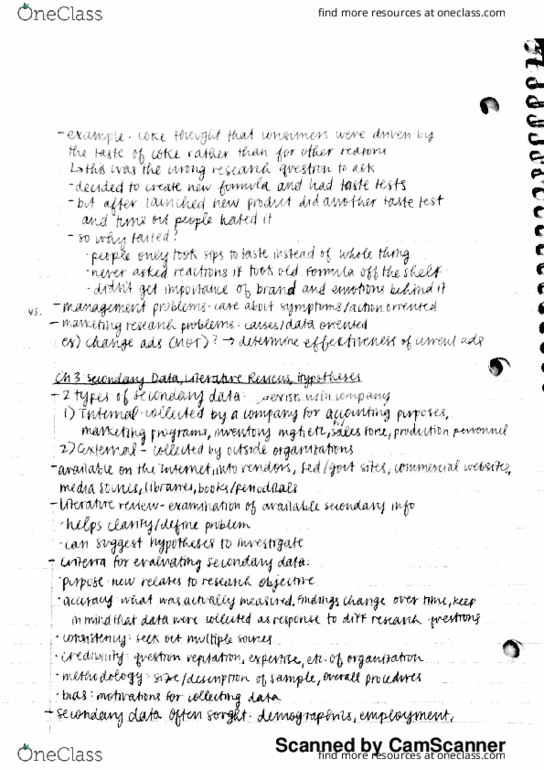 OneClass
find more resources at oneclass.com
- example - coke thought that consumers were driven by
the taste of coke rather than for other reasons
↳ this was the wrong research question to ask
- decided to create new formula and had taste tests
- but after launched new product did another taste test
and turns out people hated it
- so why failed?
· people only took sips to taste instead of whole thing
· never asked reactions if took old formula off the shelf
· didn't get importance of brand and emotions behind it
vs. - management problems - care about symptoms/action oriented
- marketing research problems: causes/data oriented
ex) change ads (NOT)? → determine effectiveness of current ads
Ch 3 Secondary Data, Literature Reviews, Hypotheses
- 2 types of secondary data: exist w/in company
1) Internal - collected by a company for accounting purposes,
marketing programs, inventory mgt etc, sales force, production personnel
2) External - collected by outside organizations
- available on the internet, info vendors, fed/govt sites, commercial website,
media sources, libraries, books/periodicals
- Literature review - examination of available secondary info
· helps clarify/define problem
· can suggest hypotheses to investigate
- criteria for evaluating secondary data:
· purpose: how relates to research objective
· accuracy: what was actually measured, findings change over time, keep
in mind that data were collected as response to diff research questions
· consistency: seek out multiple sources
· credibility: question reputation, expertise, etc. of organization
· methodology: size/description of sample, overall procedures
· bias: motivations for collecting data
- secondary data often sought: demographics, employment,
Scanned by CamScanner
OneClass
find more resources at oneclass.com